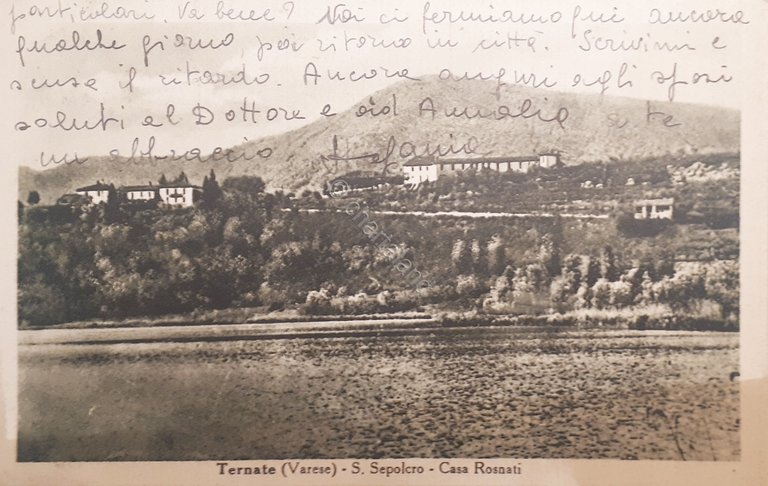 particolari. Va bene? Noi ci fermiamo qui ancora
qualche giorno, poi ritorno in città. Scrivimi e
scusa il ritardo. Ancora auguri agli sposi
saluti al Dottore e ad Amalia a te
un abbraccio Stefania
Ternate (Varese) - S. Sepolcro - Casa Rosnati